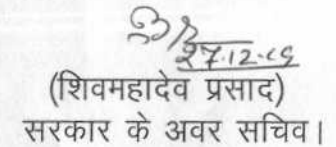 27.12.
(शिवमहादेव प्रसाद)
सरकार के अवर सचिव।